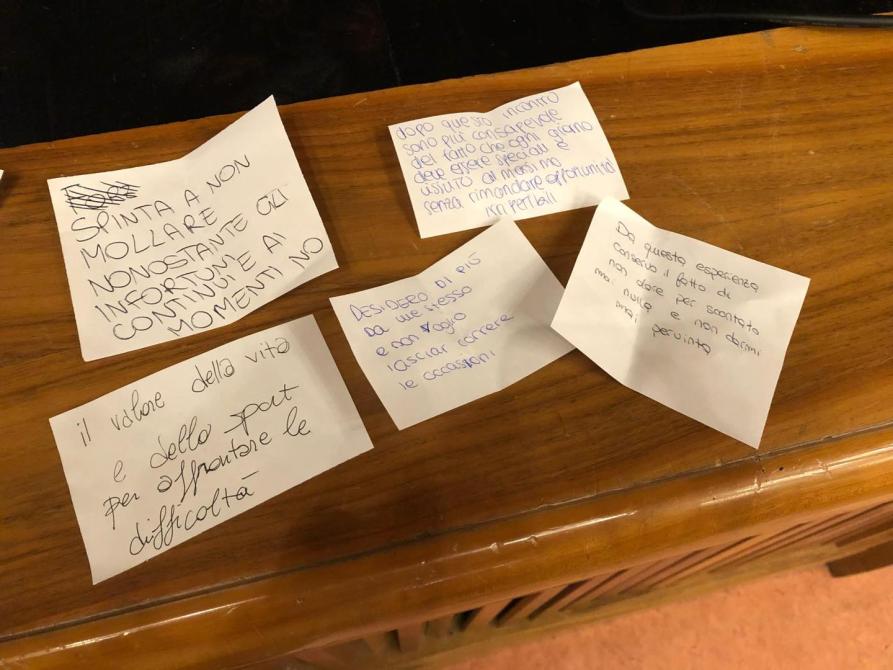 SPINTA A NON
MOLLARE
NONOSTANTE GLI
INFORTUNI E AI
CONTINUI
MOMENTI NO
dopo questo incontro
sono più consapevole
del fatto che ogni giorno
deve essere speciale e
vissuto al massimo
senza rimandare opportunità
DESIDERO DI PIÙ
DA ME STESSO
e non voglio
lasciar correre
le occasioni
Da questa esperienza
conservo il fatto di
non dare per scontato
mai nulla e non darmi
mai per vinta
il valore della vita
e dello sport
per affrontare le
difficoltà